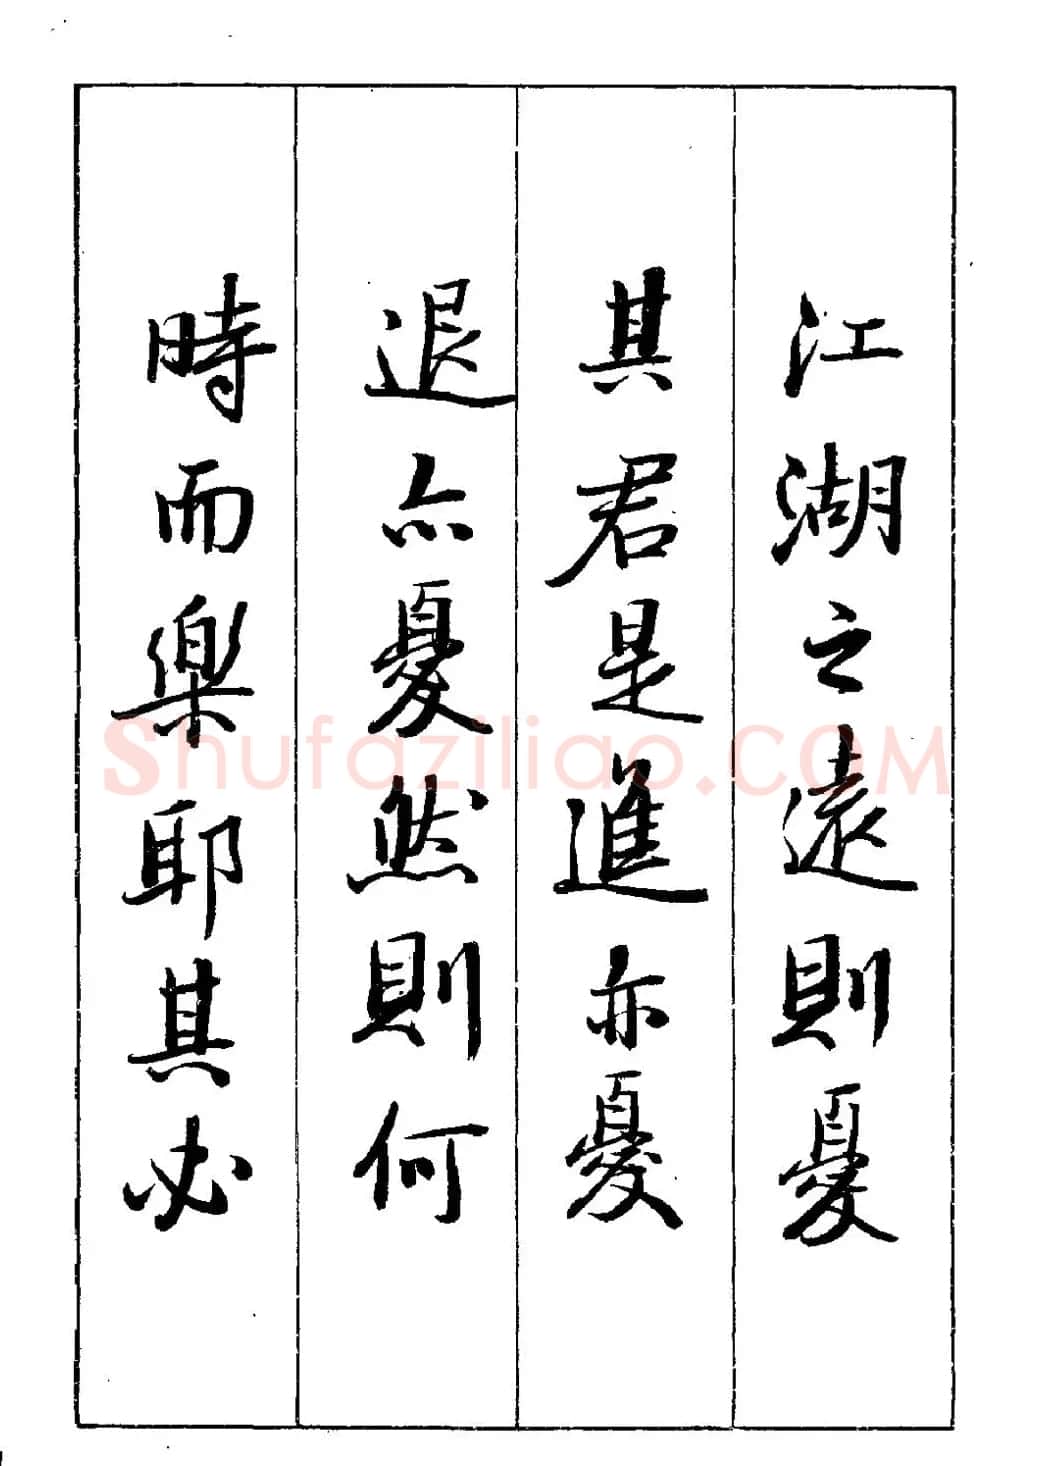 江湖之遠則憂
其君是進亦憂
退亦憂然則何
時而樂耶其必
Shufaziliao.COM